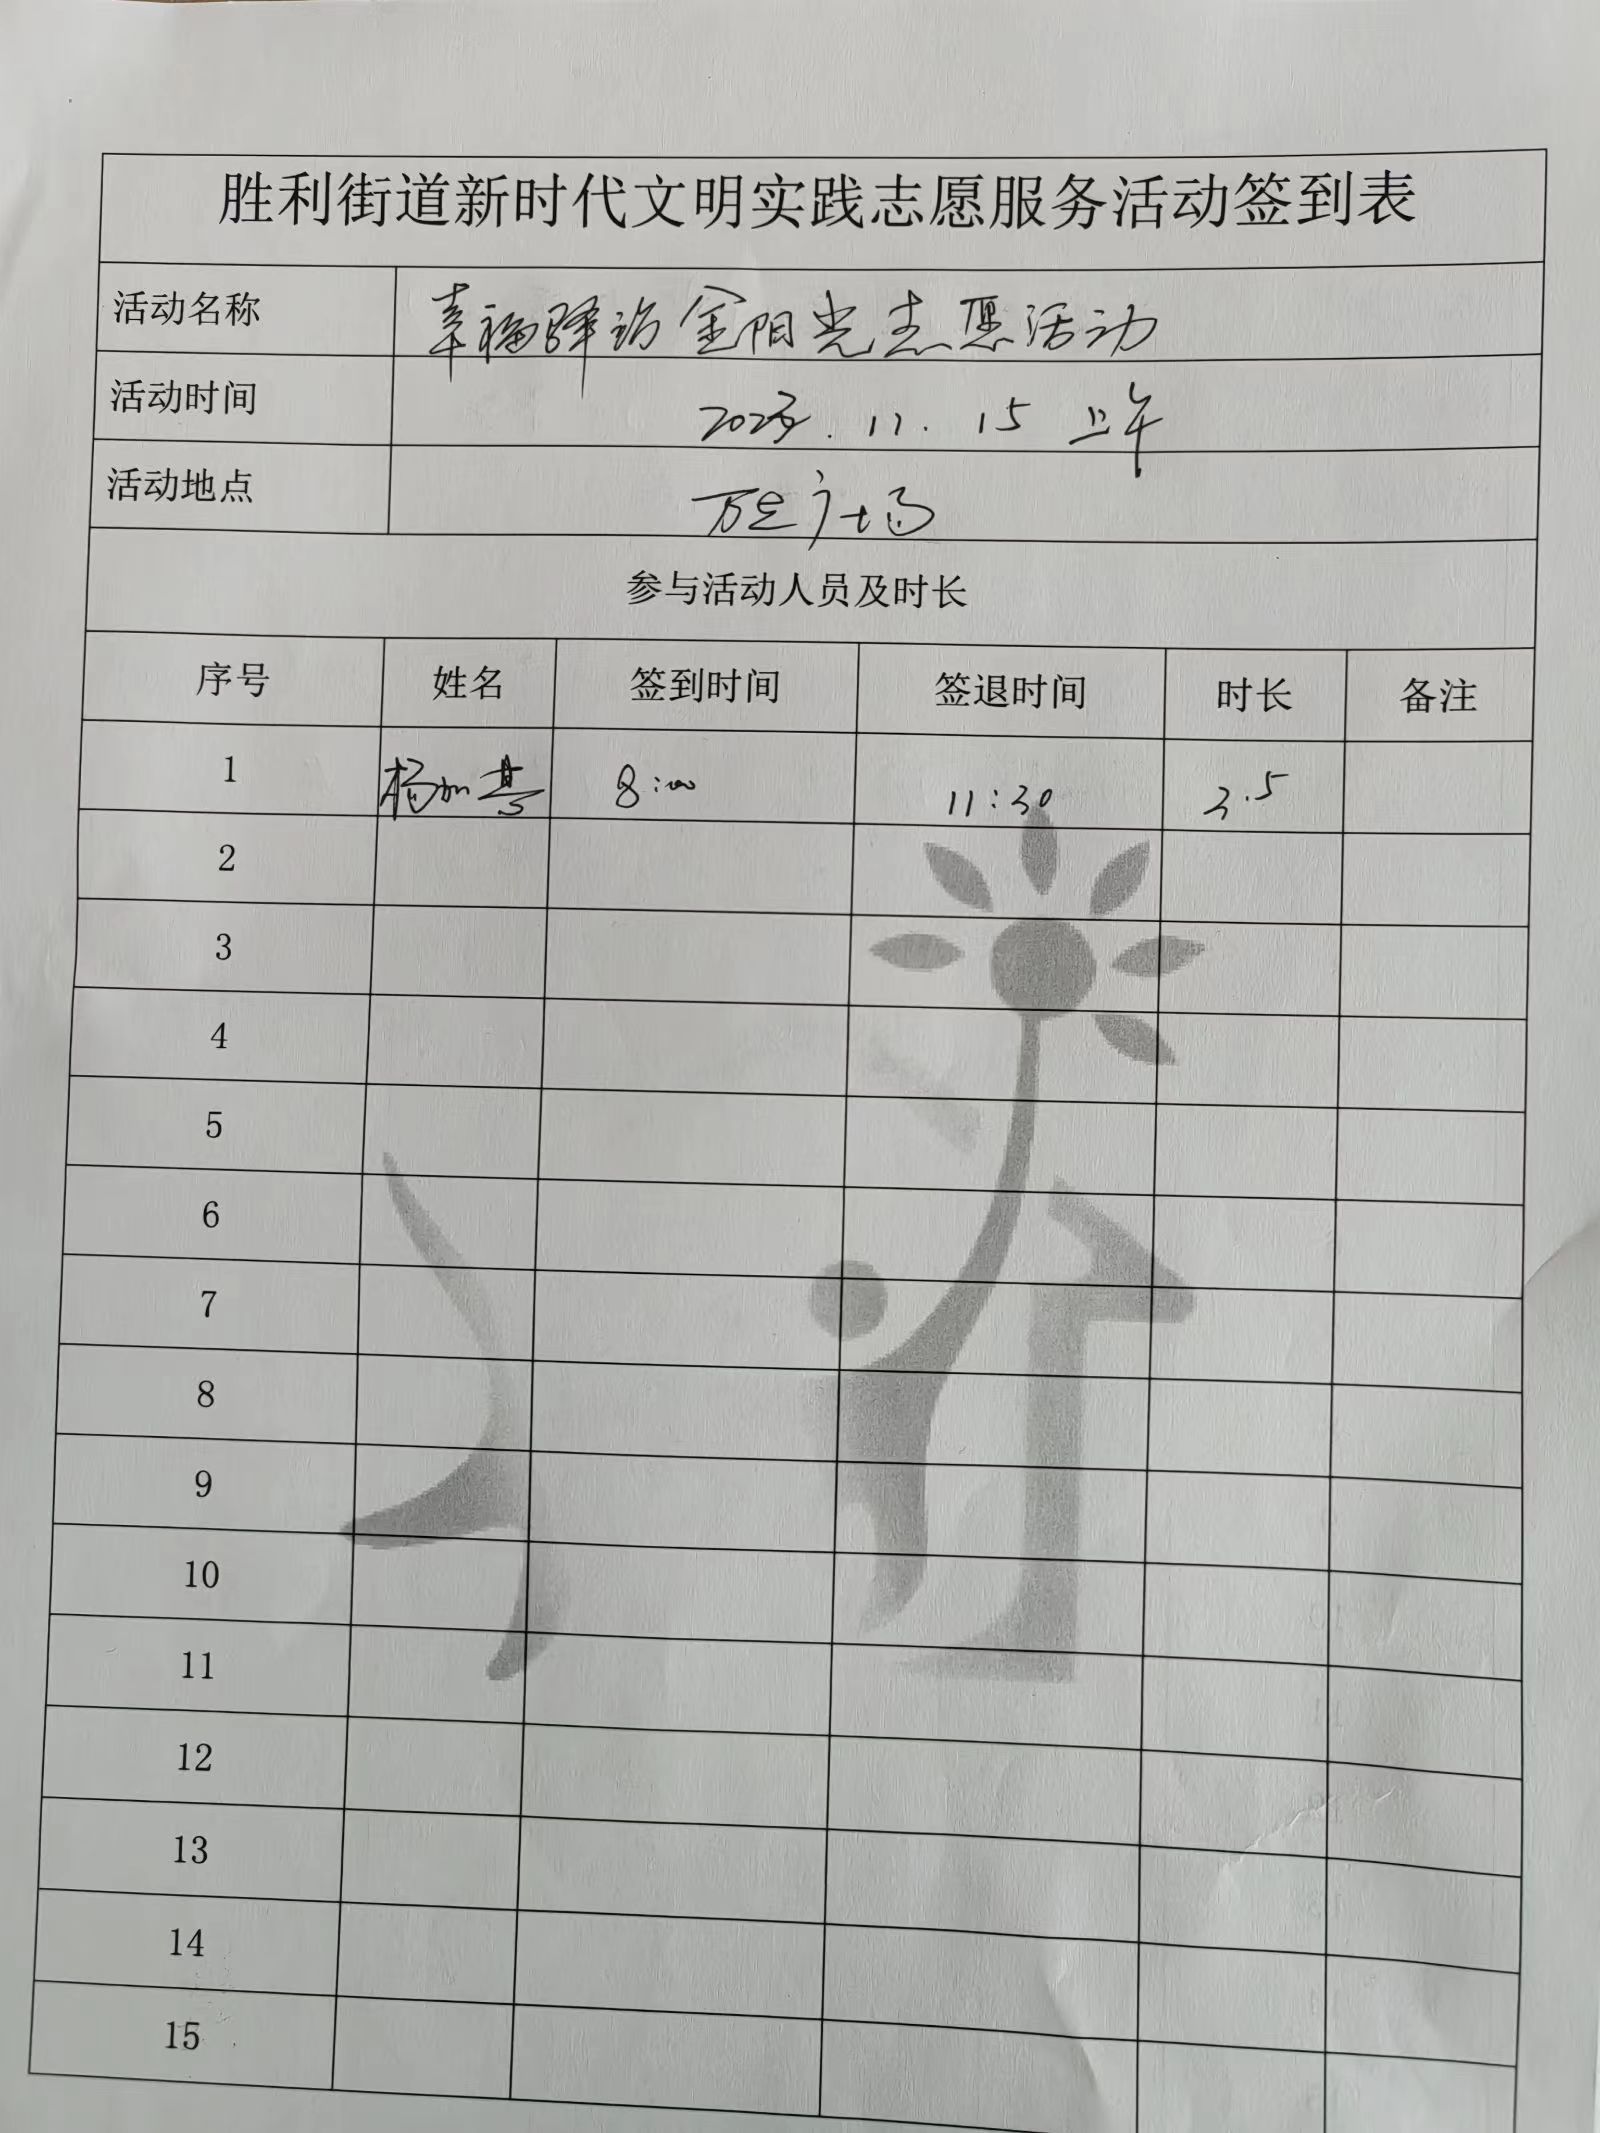 胜利街道新时代文明实践志愿服务活动签到表
活动名称 幸福驿站金阳光志愿活动
活动时间 2023.11.15 上午
活动地点 万达广场
参与活动人员及时长
序号 姓名 签到时间 签退时间 时长 备注
1 杨加 8:00 11:30 3.5
2
3
4
5
6
7
8
9
10
11
12
13
14
15